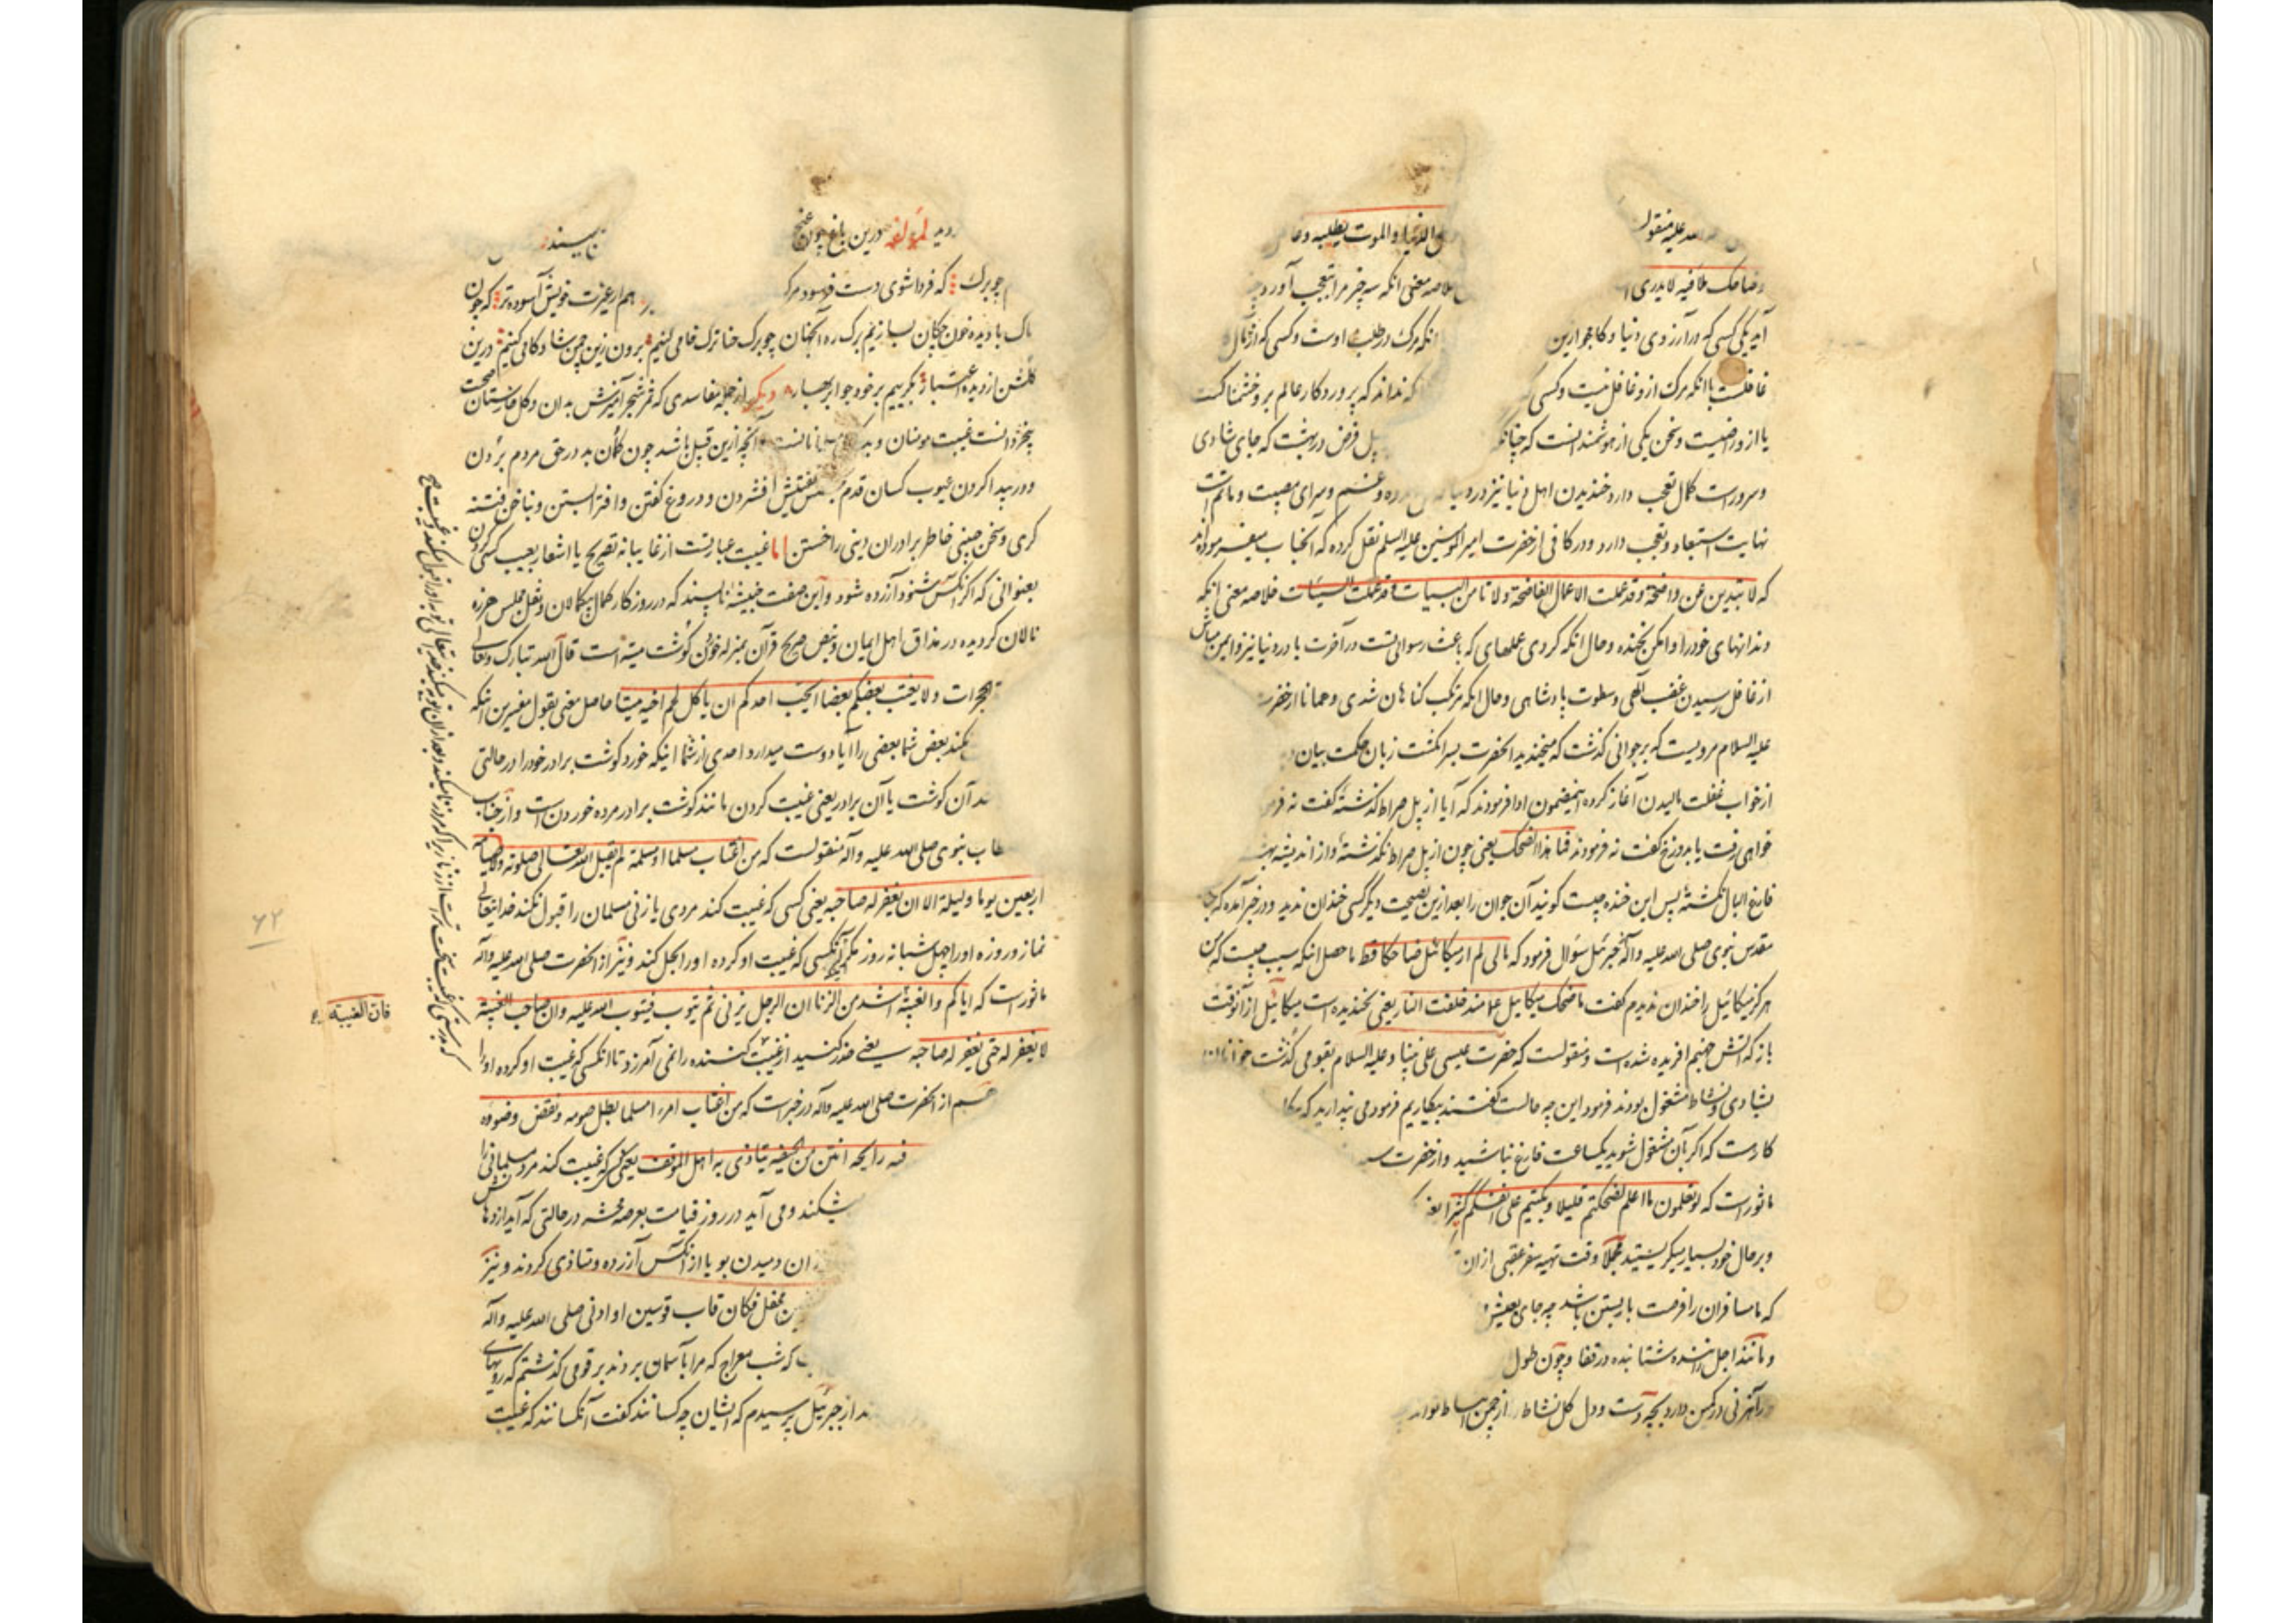 الله علیه منقول
الدنیا و الموت یطلبه و غا
ضاحک ملأ فیه لا یدری ا
خلاصه معنی آنکه سه چیز مرا بتعجب آورد
آید یکی کسی که در آرزوی دنیا و کامجو ازین
آنکه مرگ در طلب اوست و کسی که از مآل
غافلست با آنکه مرگ ازو غافل نیست و کسی
که نداند که پروردکار عالم برو خشمناکست
یا ازو راضیست و سخن یکی از هوشمندانست که چنانکه
فرض در بهشت که جای شادی
و سرور است کمال تعجب دارد خندیدن اهل دنیا نیز در دنیا
و غم و سرای مصیبت و ماتم است
نهایت استبعاد و تعجب دارد و در کافی از حضرت امیر المؤمنین علیه السلم نقل کرده که آنجناب میفرموده اند
که لا تبدین عن واضحة و قد عملت الاعمال الفاضحة و لا تامن البیات و قد عملت السیئات خلاصه معنی آنکه
دندانهای خود را وا مکن بخنده و حال آنکه کردی عملهای که باعث رسوائیست در آخرت یا در دنیا نیز و ایمن مباش
از غافل رسیدن غضب الهی و سطوت پادشاهی و حال آنکه مرتکب کناهان شدی و همانا از حضرت
علیه السلام مرویست که بر جوانی کذشت که میخندید آنحضرت بسر انکشت زبان حکمت بیان
از خواب غفلت مالیدن آغاز کرده باینمضمون ادا فرمودند که آیا از پل صراط کذشتۀ کفت نه
خواهی رفت یا بدوزخ کفت نه فرمودند فما هذا الضحک یعنی چون از پل صراط نکذشتۀ و از اندیشه
فارغ البال نکشتۀ پس این خنده چیست کویند آن جوان را بعد ازین نصیحت دیگر کسی خندان ندید و در خبر آمده که
مقدس نبوی صلی الله علیه و آله از جبرئیل سؤال فرمود که مالی لم ار میکائیل ضاحکا قط ماحصل آنکه سبب چیست که من
هرکز میکائیل را خندان ندیدم کفت ما ضحک میکائیل منذ خلقت النار یعنی نخندیده است میکائیل از آنوقت
باز که آتش جهنم افریده شده است و منقولست که حضرت عیسی علی نبینا و علیه السلام بقومی کذشت
بشادی و نشاط مشغول بودند فرمود این چه حالست کفتند بیکاریم فرمود می پندارید که
کاردست که اکر بآن مشغول شوید یکساعت فارغ نباشید و از حضرت
ماثور است که لو تعلمون ما اعلم لضحکتم قلیلا و بکیتم علی انفسکم کثیرا
و بر حال خود بسیار میکریستید مجملا وقت تهیه سفر عقبی از ان
که ما مسافران را فرصت بار بستن باشد چه جای
و مانند اجل راننده شتابنده در قفا و چون طول
رهزنی در کمین دارد بچه دست و دل کل نشاط از چمن
لمؤلفه درین باغ چون غنچه
ناپسند
چو برک که فردا شوی دست فرسود مرک
هم از عزت خویش آسوده تر که چون
تاک با دیده خون چکان بسازیم برک ره آنجهان چو برک حنا ترک خامی کنیم برون زین چمن شادکامی کنیم درین
کلشن از دیده اعتبار بکرییم بر خود چو ابر بهار دیکر از جمله مفاسدی که ثمر شجر آمیزش بدان و کل خارستان صحبت
بیخردانست غیبت مومنان و بد مسلمانانست و آنچه ازین قبیل باشد چون کمان بد در حق مردم بردن
و در پیدا کردن عیوب کسان قدم تفتیش افشردن و دروغ کفتن و افترا بستن و بناخن فتنه
کری و سخن چینی خاطر برادران دینی را خستن اما غیبت عبارتست از غایبانه تصریح یا اشعار بعیب کسی کردن
بعنوانی که اکر آنکس شنود آزرده شود و این صفت خبیثه ناپسند که در روزکار کمال بیکمالان و نقل مجلس هرزه
نالان کردیده در مذاق اهل ایمان و بنص صریح قرآن بمنزله خوردن کوشت میته است قال الله تبارک و تعالی
حجرات و لا یغتب بعضکم بعضا ایحب احدکم ان یاکل لحم اخیه میتا حاصل معنی بقول مفسرین آنکه
نکند بعض شما بعضی را آیا دوست میدارد احدی از شما اینکه خورد کوشت برادر خود را در حالتی
آن کوشت یا آن برادر یعنی غیبت کردن مانند کوشت برادر مرده خوردن است و از جناب
نبوی صلی الله علیه و آله منقولست که من اغتاب مسلما او مسلمة لم یقبل الله تعالی صلوته و لا صیامه
اربعین یوما و لیلة الا ان یغفر له صاحبه یعنی کسی که غیبت کند مردی یا زنی مسلمان را قبول نکند خدا یتعالی
نماز و روزه او را چهل شبانه روز مکر آنکسی که غیبت او کرده او را بحل کند و نیز از آنحضرت صلی الله علیه و آله
ماثور است که ایاکم و الغیبة اشد من الزنا ان الرجل یزنی ثم یتوب فیتوب الله علیه و ان صاحب الغیبة
لا یغفر له حتی یغفر له صاحبه یعنی حذر کنید از غیبت کننده را نمی آمرزد تا آنکسی که غیبت او کرده او را
از آنحضرت صلی الله علیه و آله در خبر است که من اغتاب امرء مسلما بطل صومه و نقض وضوءه
فیه رایحة انتن من الجیفة یتأذی به اهل الموقف یعنی کسی که غیبت کند مرد مسلمانی را
میشکند و می آید در روز قیامت بعرصه محشر در حالتی که آید از دهانش
دمیدن بو یا از آنکس آزرده و متاذی کردند و نیز
محفل فکان قاب قوسین او ادنی صلی الله علیه و آله
که شب معراج که مرا بآسمان بردند بر قومی کذشتم که رویهای
از جبرئیل پرسیدم که ایشان چه کسانند کفت آنکسانند که غیبت
فان الغیبة
که بدرستی که غیبت سخت تر است از زنا زیرا که مرد زنا میکند و بعد از ان توبه میکند خدایتعالی توبه او را قبول میکند و غیبت
۶۲